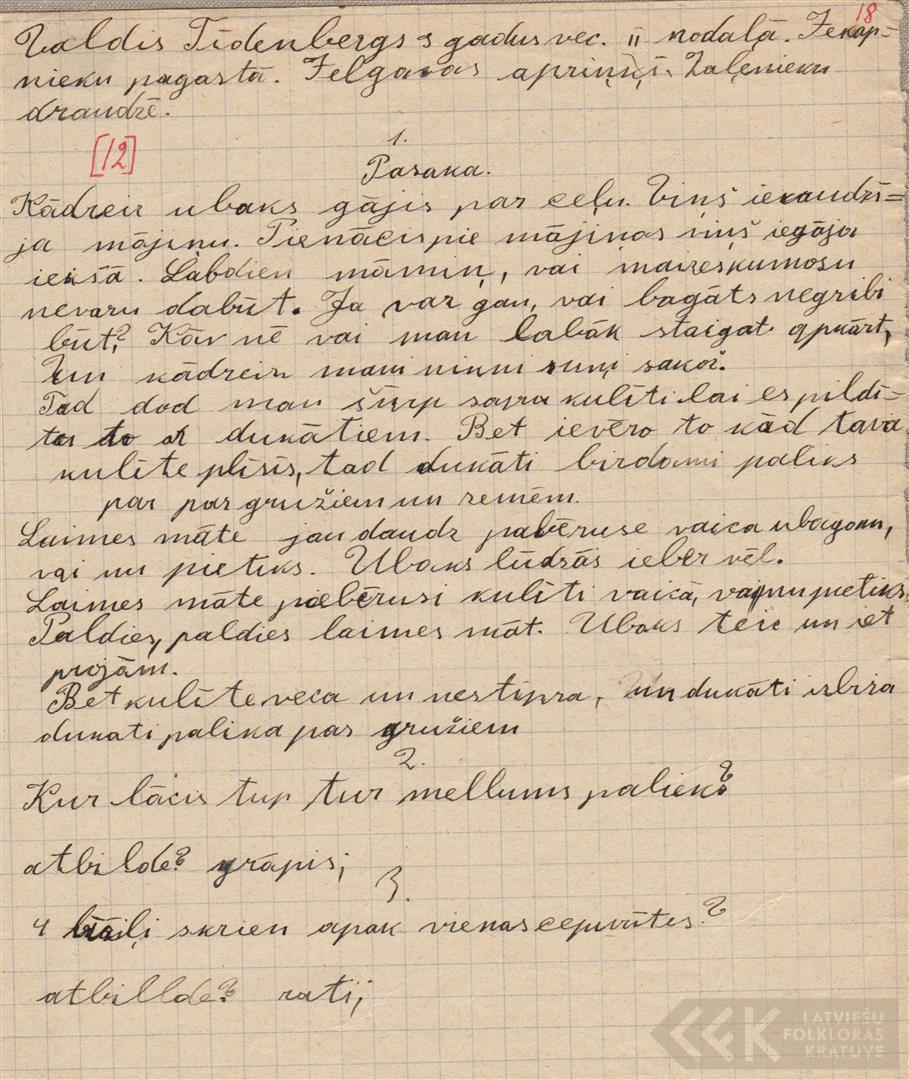 18
Valdis Tīdenbergs 9 gadus vec. II nodaļā. Jēkap-
nieku pagastā. Jelgavas apriņķī. Zaļenieku
draudzē.
1.
[12]
Pasaka.
Kādreiz ubaks gājis par ceļu. Viņš ieraudzī=
ja mājiņu. Pienācis pie mājiņas viņš iegāja
iekšā. Labdien māmiņ, vai maizes kumosu
nevaru dabūt. Ja var gan, vai bagāts negribi
būt? Kāv nē vai man labāk staigat apkārt,
Un kādreiz mani viņi suņi sakož.
Tad dod man šurp savu kulīti lai es pildī-
tu to ar dukātiem. Bet ievēro to kād tava
kulīte plīsīs, tad dukāti birdami paliks
par par gružiem un zemēm.
Laimes māte jau daudz pabēruse vaica ubagam,
vai nu pietiks. Ubaks lūdzās ieber vēl.
Laimes māte piebērusi kulīti vaicā, vai nu pietiks.
Paldies, paldies laimes māt. Ubaks teic un iet
projām.
Bet kulīte veca un nestipra, un dukāti izbira
dukati palika par gružiem
2.
Kur lācis tup tur mellums paliek?
atbilde? grāpis;
3.
4 brāļi skrien apak vienas cepurītes?
atbillde? rati;
LATVIEŠU
FOLKLORAS
KRĀTUVE